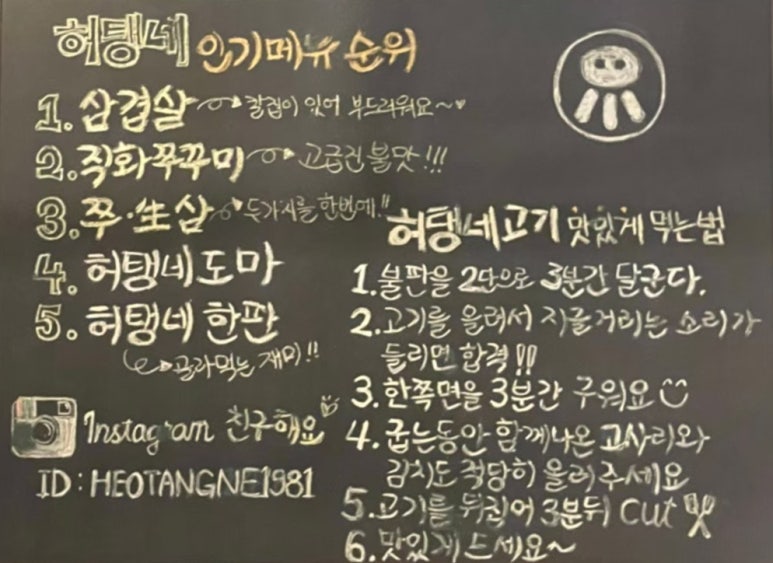 허탱네 인기메뉴 순위
1. 삼겹살 칼집이 있어 부드러워요~♥
2. 직화쭈꾸미 고급진 불맛!!!
3. 쭈·生삼 두가지를 한번에!!
4. 허탱네도마
5. 허탱네 한판
골라먹는 재미!!
Instagram 친구해요
ID : HEOTANGNE1981
허탱네고기 맛있게 먹는법
1. 불판을 2단으로 3분간 달군다.
2. 고기를 올려서 지글거리는 소리가
들리면 합격!!
3. 한쪽면을 3분간 구워요
4. 굽는동안 함께나온 고사리와
김치도 적당히 올려주세요
5. 고기를 뒤집어 3분뒤 cut
6. 맛있게 드세요~